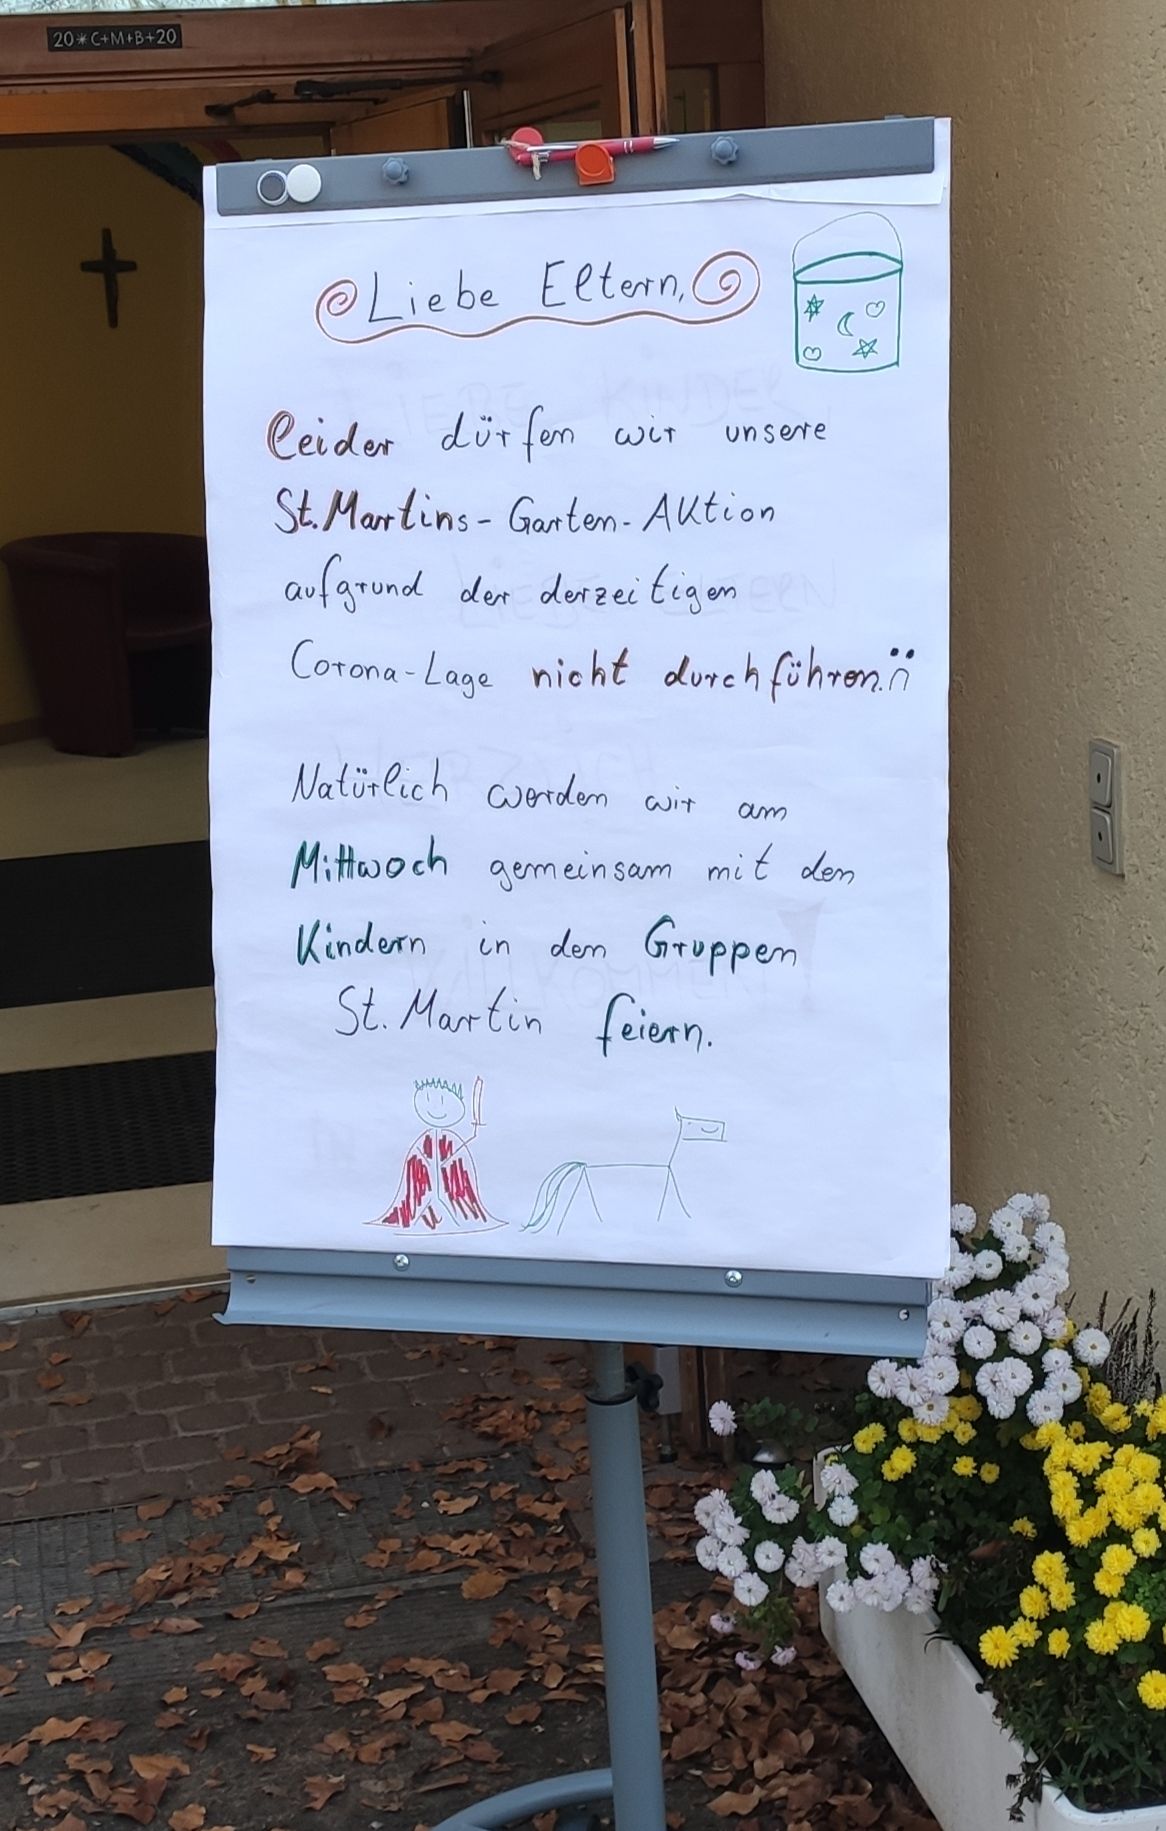 20*C+M+B+20
Liebe Eltern,
leider dürfen wir unsere
St. Martins-Garten-Aktion
aufgrund der derzeitigen
Corona-Lage nicht durchführen.
Natürlich werden wir am
Mittwoch gemeinsam mit den
Kindern in den Gruppen
St. Martin feiern.